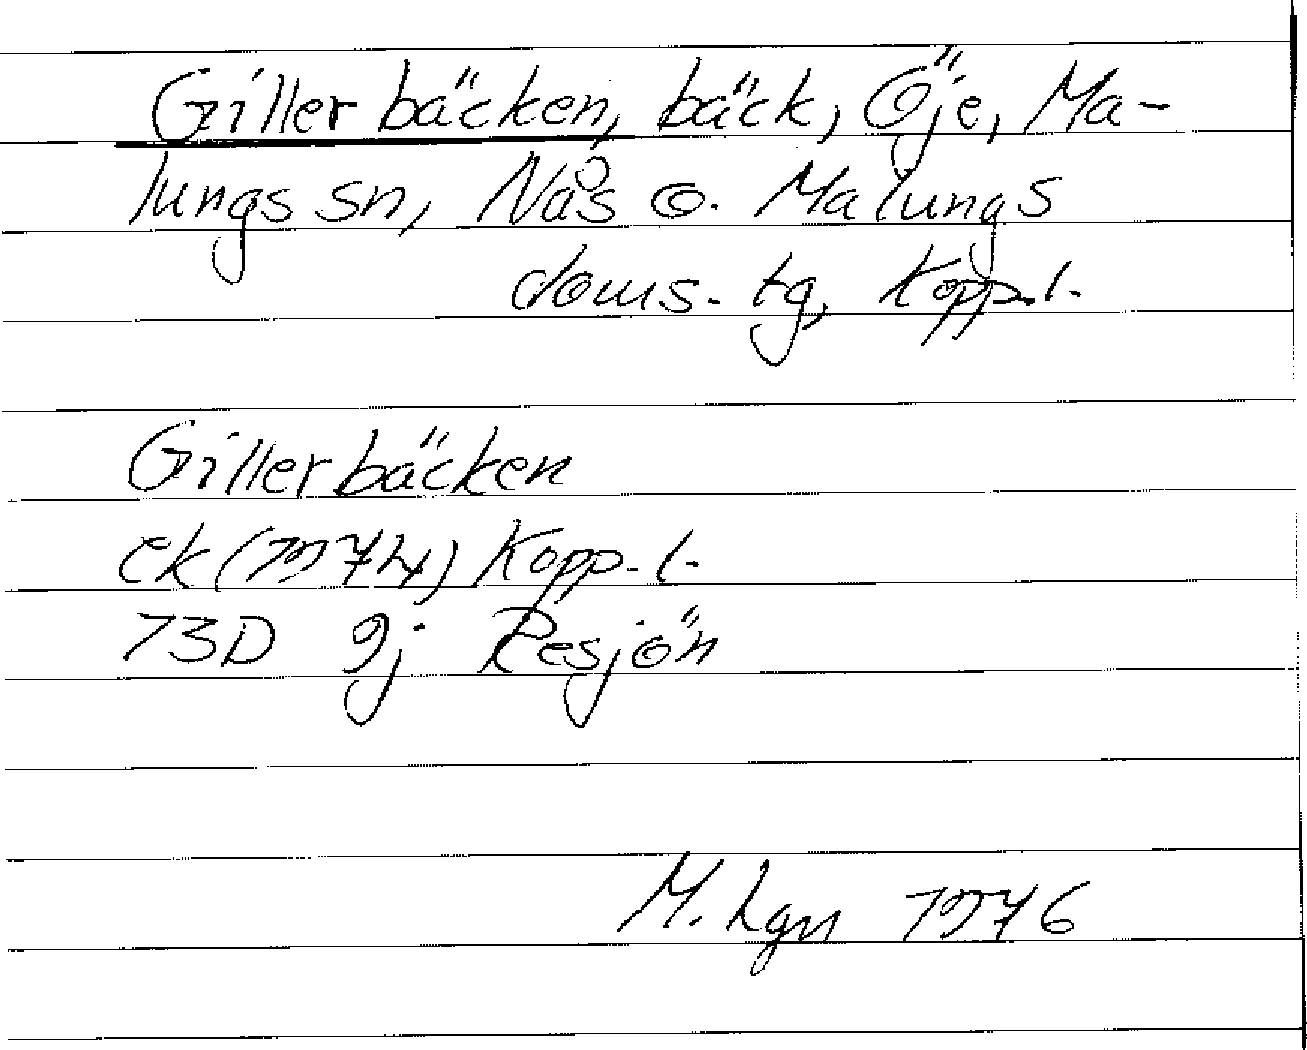 Gillerbäcken, bäck, Öje, Ma-
lungs sn, Nås o. Malungs
doms. tg, Kopp. l.
Gillerbäcken
ek (1974) Kopp. l.
13D 9j Resjön
M. Lgn 1976